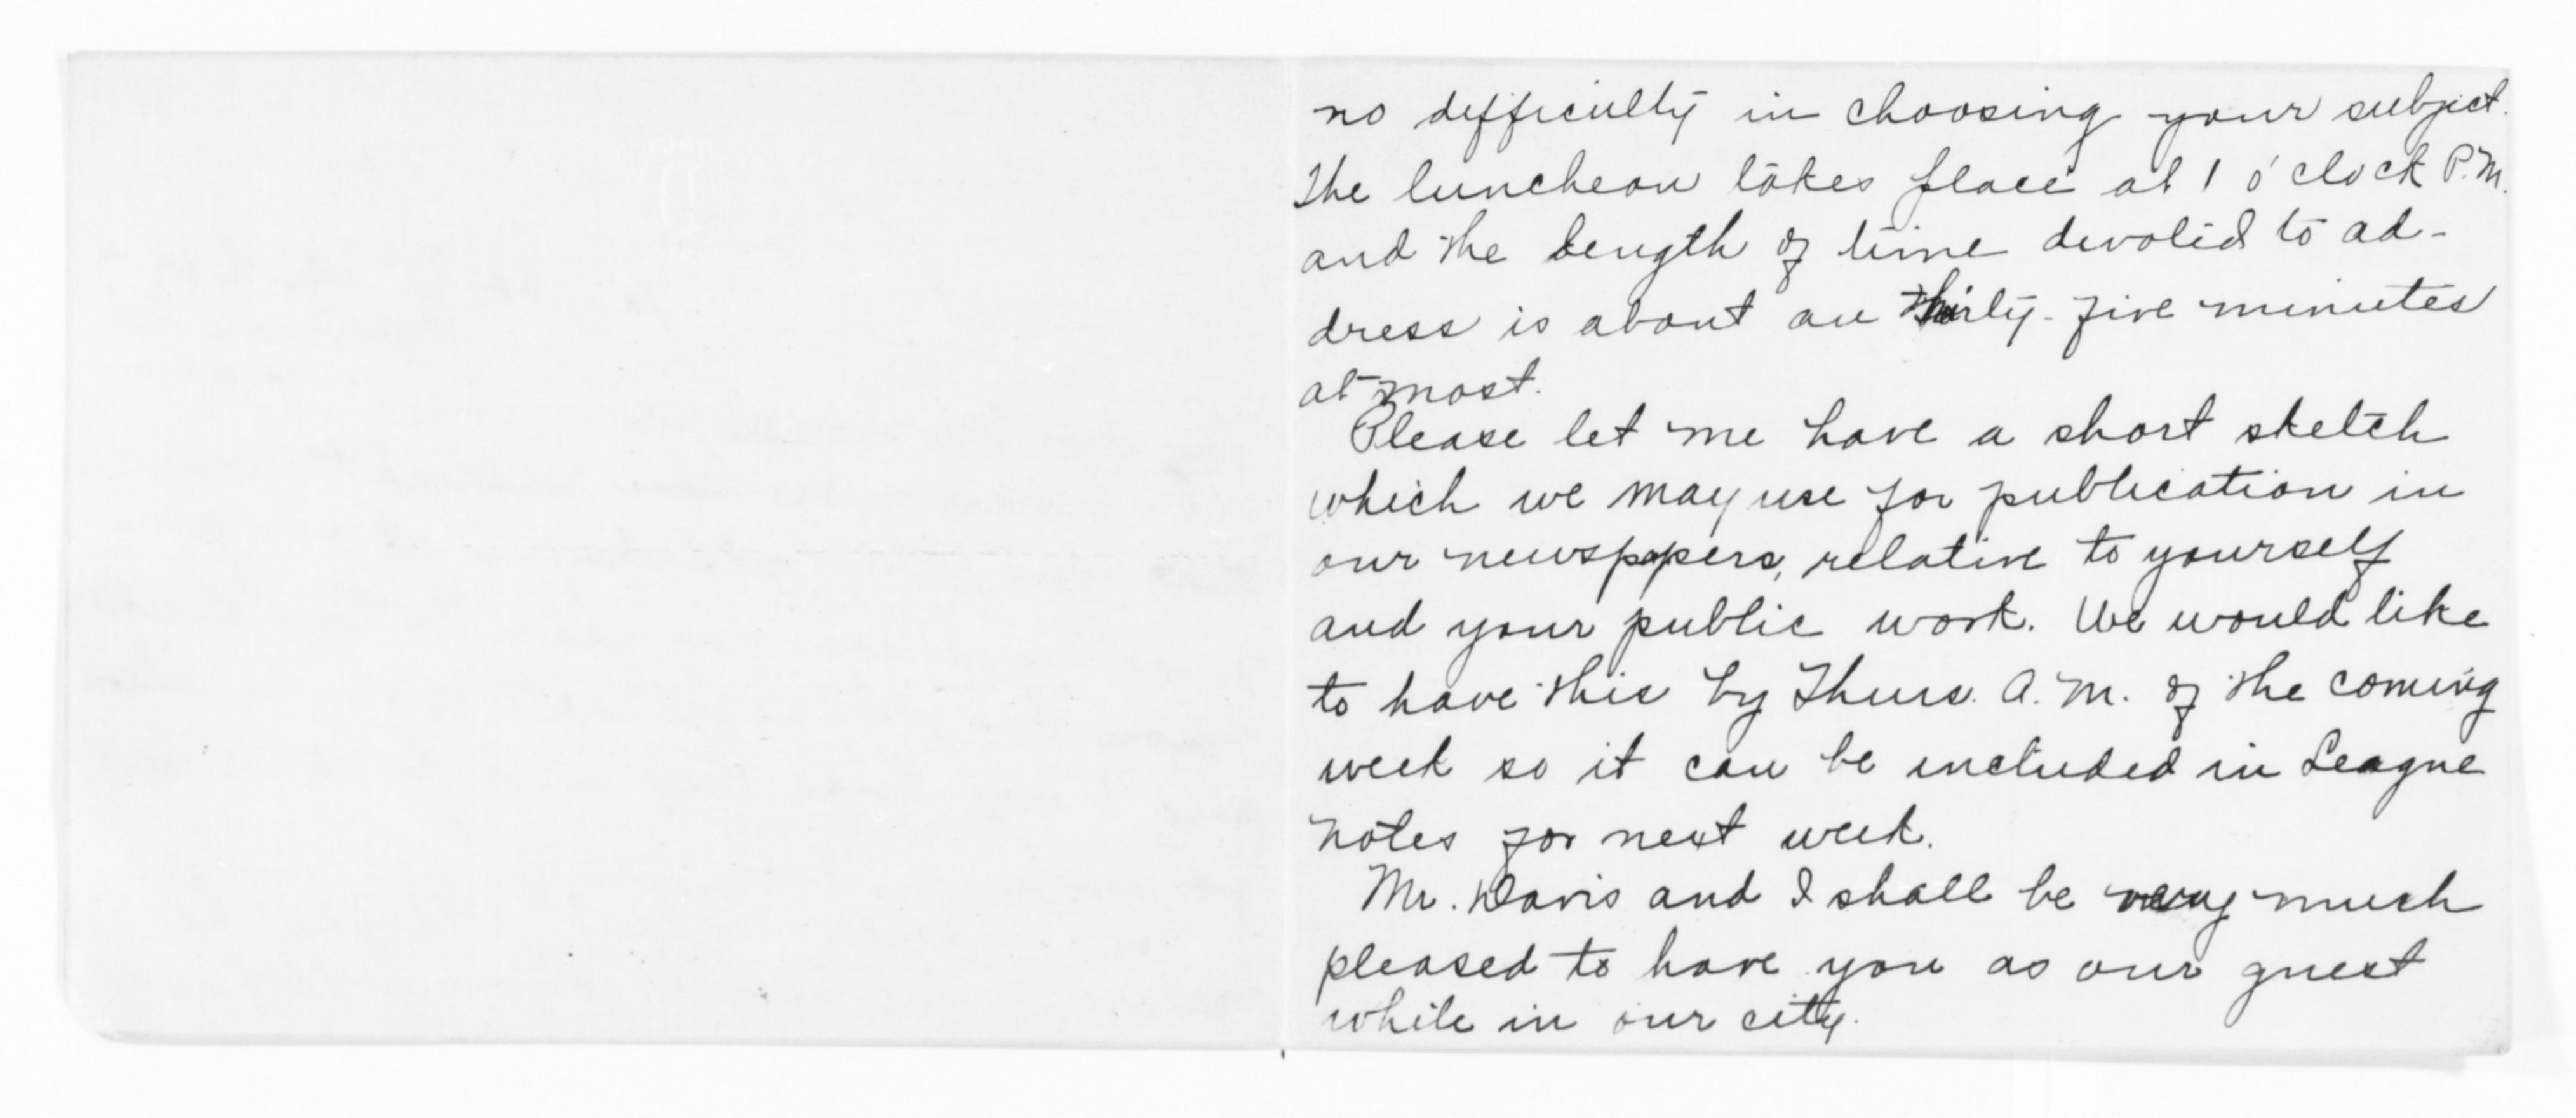 no difficulty in choosing your subject.
The luncheon takes place at 1 o'clock P.M.
and the length of time devoted to ad-
dress is about an thirty-five minutes
at most.
Please let me have a short sketch
which we may use for publication in
our newspapers, relative to yourself
and your public work. We would like
to have this by Thurs. A.M. of the coming
week so it can be included in League
notes for next week.
Mr. Davis and I shall be very much
pleased to have you as our guest
while in our city.